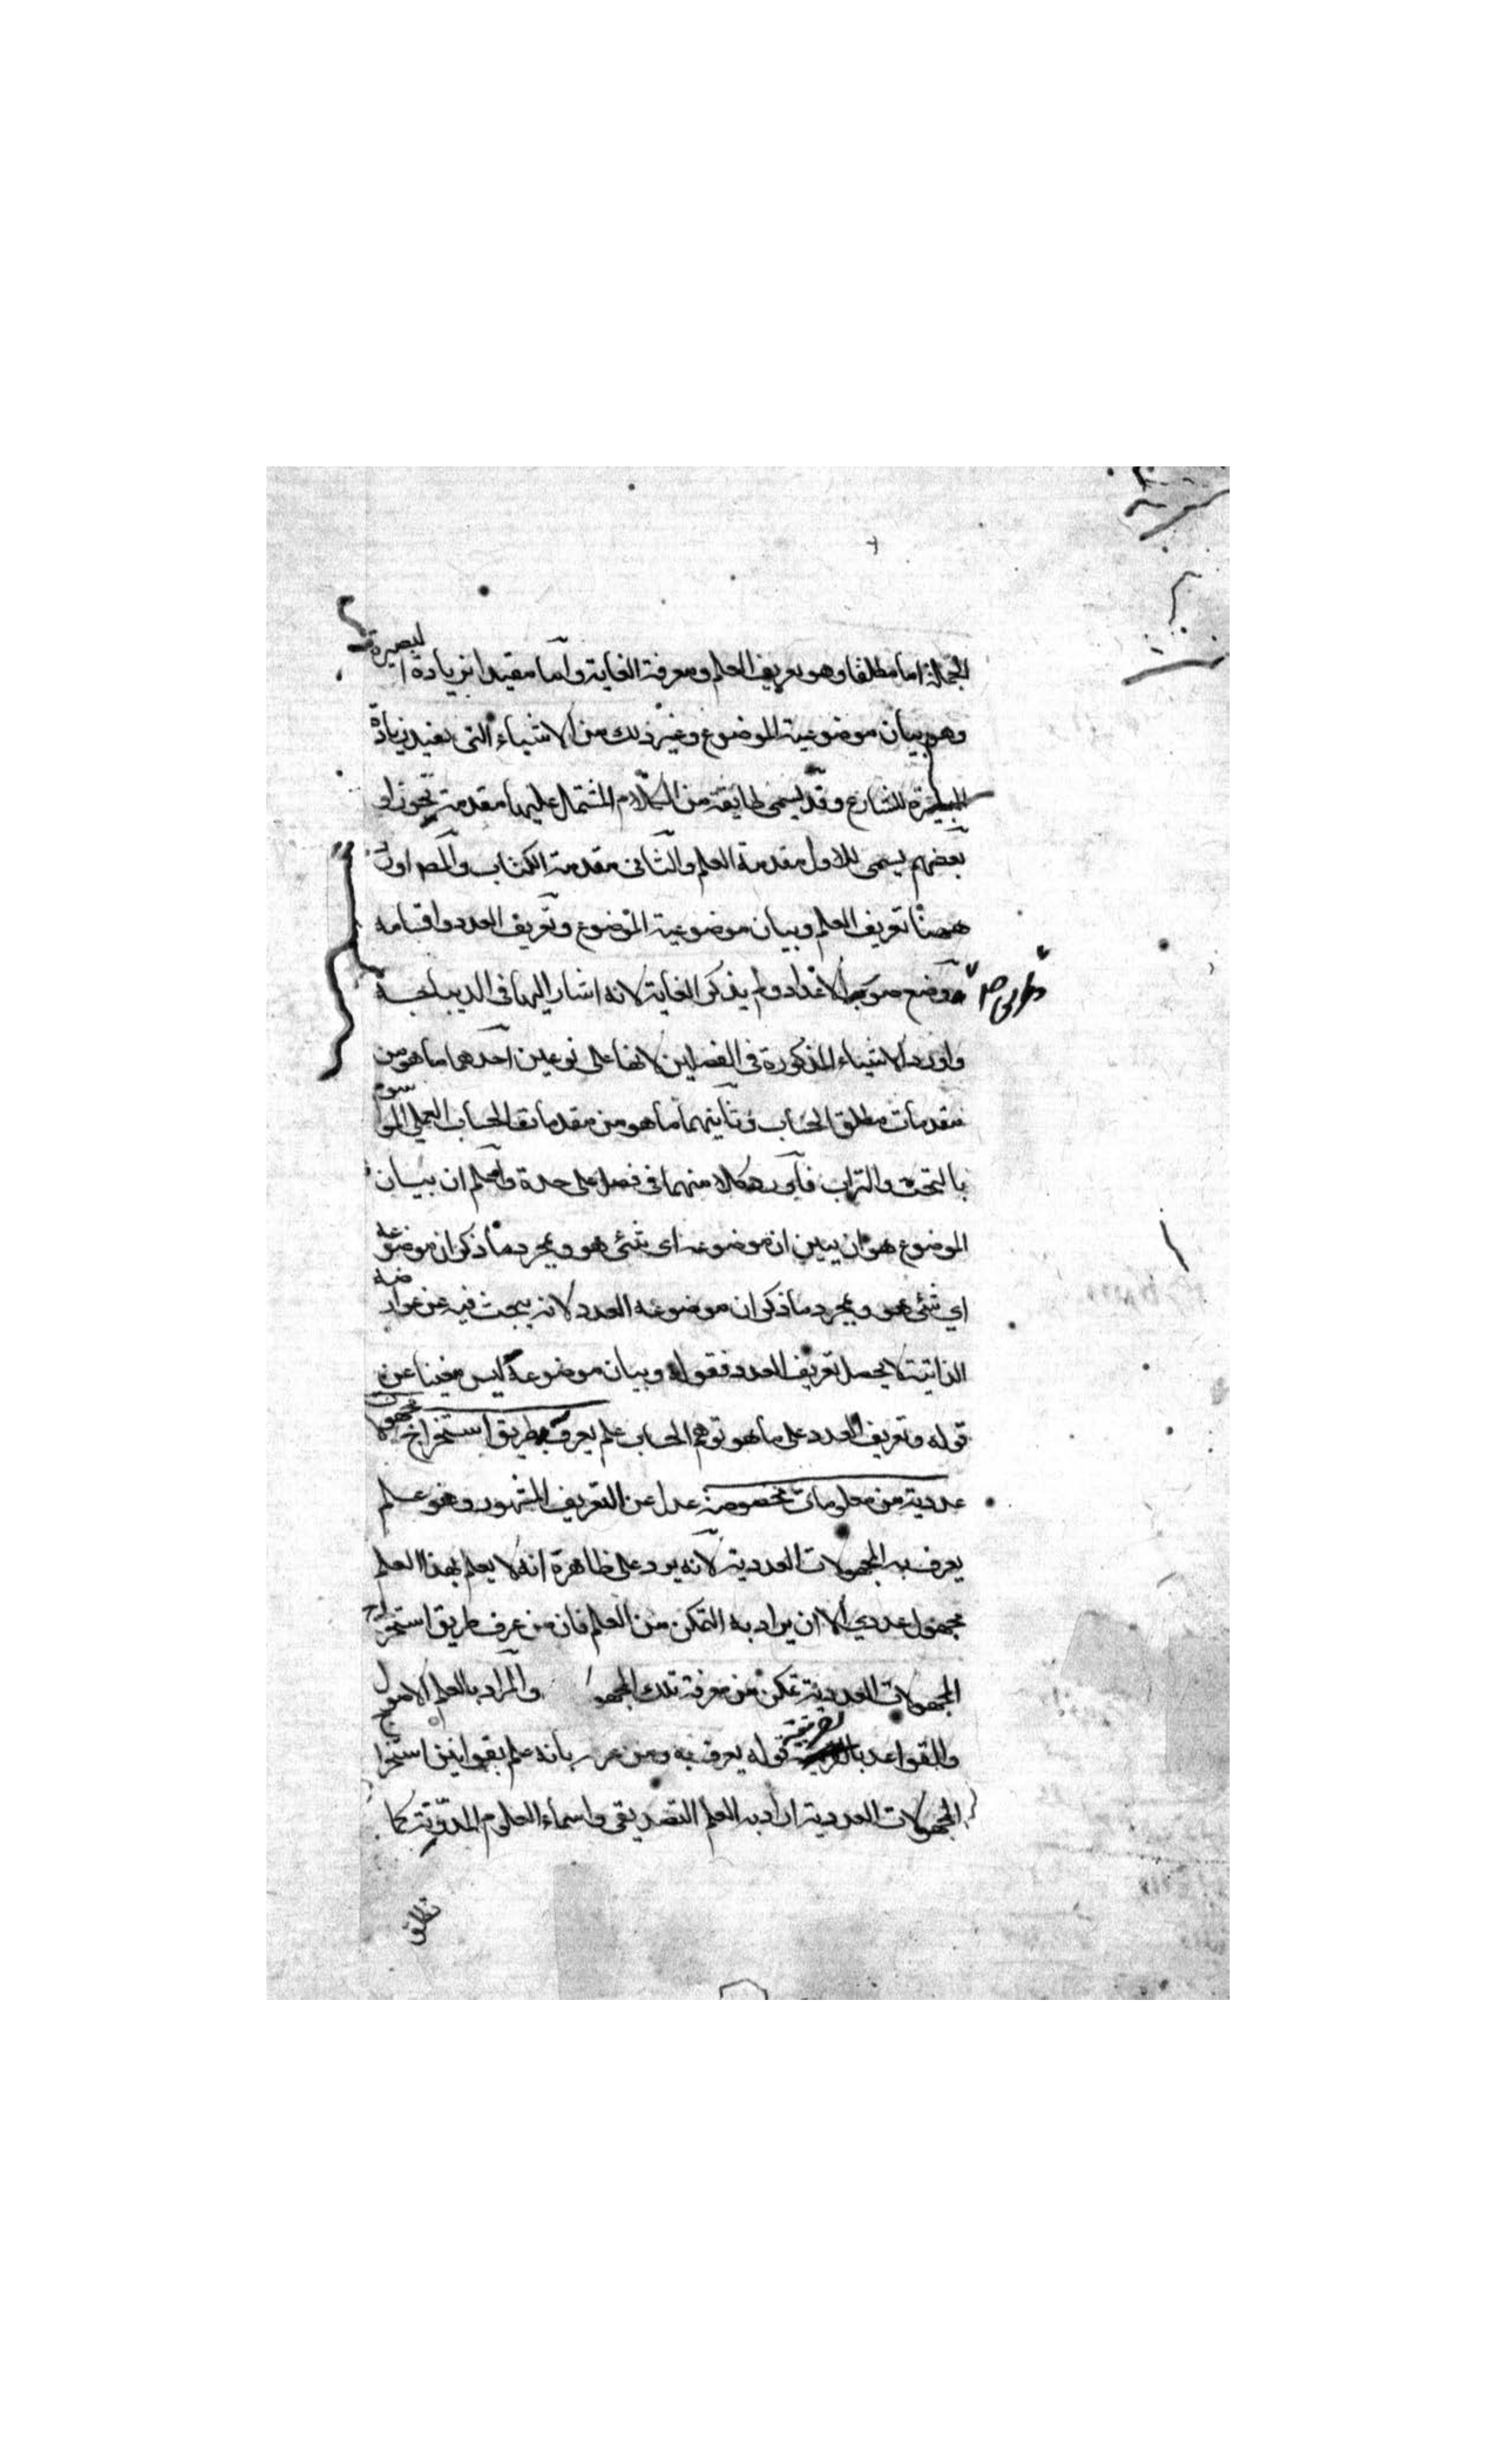 الجملة اما مطلقا وهو تعريف العلم ومعرفة الغاية واما مقيدا بزيادة البصيرة
وهو بيان موضوعية الموضوع وغير ذلك من الاشياء التى تفيد زيادة
البصيرة للشارع وقد يسمى طايفة من الكلام المشتمل عليها مقدمة تجوزا و
بعضهم يسمى للاول مقدمة العلم والثانى مقدمة الكتاب والمص اورد
ههنا تعريف العلم وبيان موضوعية الموضوع وتعريف العدد واقسامه
ووضع صور الاعداد ولم يذكر الغاية لانه اشار اليها فى الديباجة
واورد الاشياء المذكورة فى الفصلين لانها على نوعين احدهما ما هو من
مقدمات مطلق الحساب وثانيهما ما هو من مقدمات الحساب العملى الموسوم
بالتخت والتراب فاورد كلا منهما فى فصل على حدة واعلم ان بيان
الموضوع هو ان يبين ان موضوعه اى شئ هو وبمجرد ما ذكر ان موضوعه
اي شئ هو وبمجرد ما ذكر ان موضوعه العدد لانه يبحث فيه عن عوارضه
الذاتية لا يحصل تعريف العدد فقوله وبيان موضوعه ليس مغنيا عن
قوله وتعريف العدد على ما هو توهم الحساب علم يعرف به طريق استخراج مجهولات
عددية من معلومات مخصوصة عدل عن التعريف المشهور وهو علم
يعرف به المجهولات العددية لانه يرد على ظاهرة انه لا يعلم بهذا العلم
مجهول عددي الا ان يراد به التمكن من العلم فان من عرف طريق استخراج
المجهولات العددية تمكن من معرفة تلك المجهو والمراد بالعلم الاصول
والقواعد بالقرينة قوله يعرف به ومن عرف بانه علم بقوانين استخراج
المجهولات العددية اراد به العلم التصديقى واسماء العلوم المدونة كما
تطلق